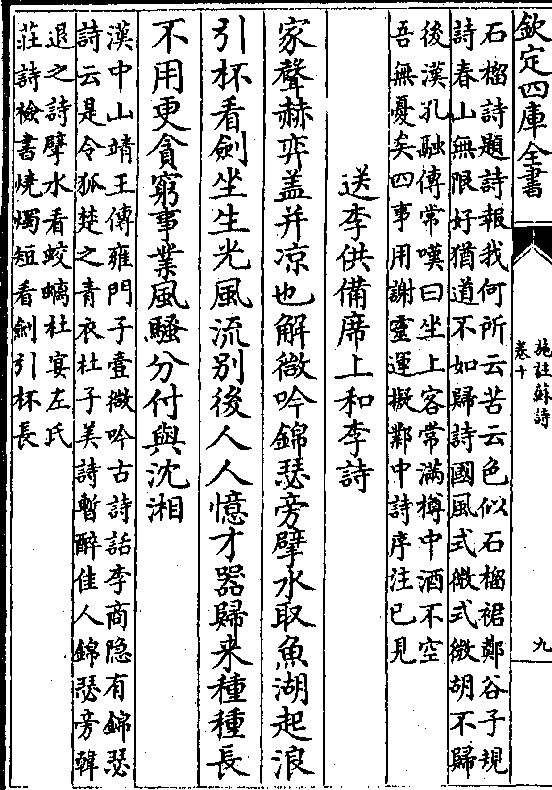 欽定四庫全書
施註蘇詩
卷十
九
石榴詩題詩報我何所云苦云色似石榴裙鄭谷子規
詩春山無限好猶道不如歸詩國風式微式微胡不歸
後漢孔融傳常嘆曰坐上客常滿樽中酒不空
吾無憂矣四事用謝靈運擬鄴中詩序注已見
送李供備席上和李詩
家聲赫奕盖并凉也解微吟錦瑟旁擘水取魚湖起浪
引杯看劍坐生光風流别後人人憶才器歸来種種長
不用更貪窮事業風騷分付與沈湘
漢中山靖王傳雍門子壹微吟古詩話李商隐有錦瑟
詩云是令狐楚之青衣杜子美詩暫醉佳人錦瑟旁韓
退之詩擘水看蛟螭杜宴左氏
莊詩檢書燒燭短看劍引杯長